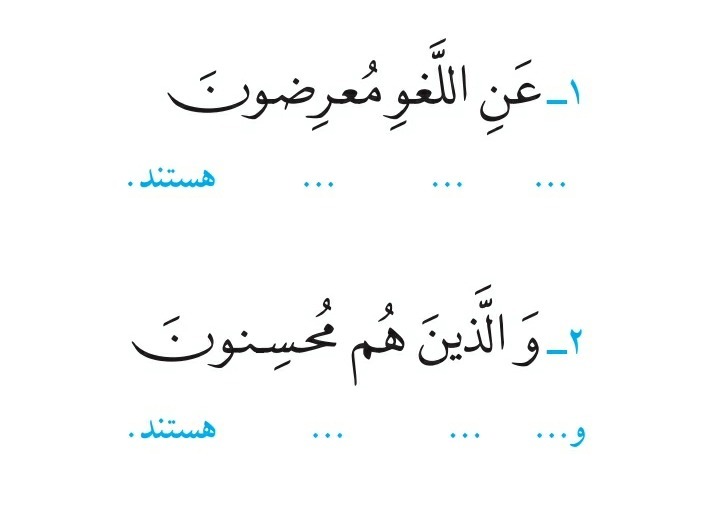 ۱ـ عَنِ اللَّغوِ مُعرِضونَ
... ... ... هستند.
۲ـ وَ الَّذینَ هُم مُحسِنونَ
و... ... ... هستند.